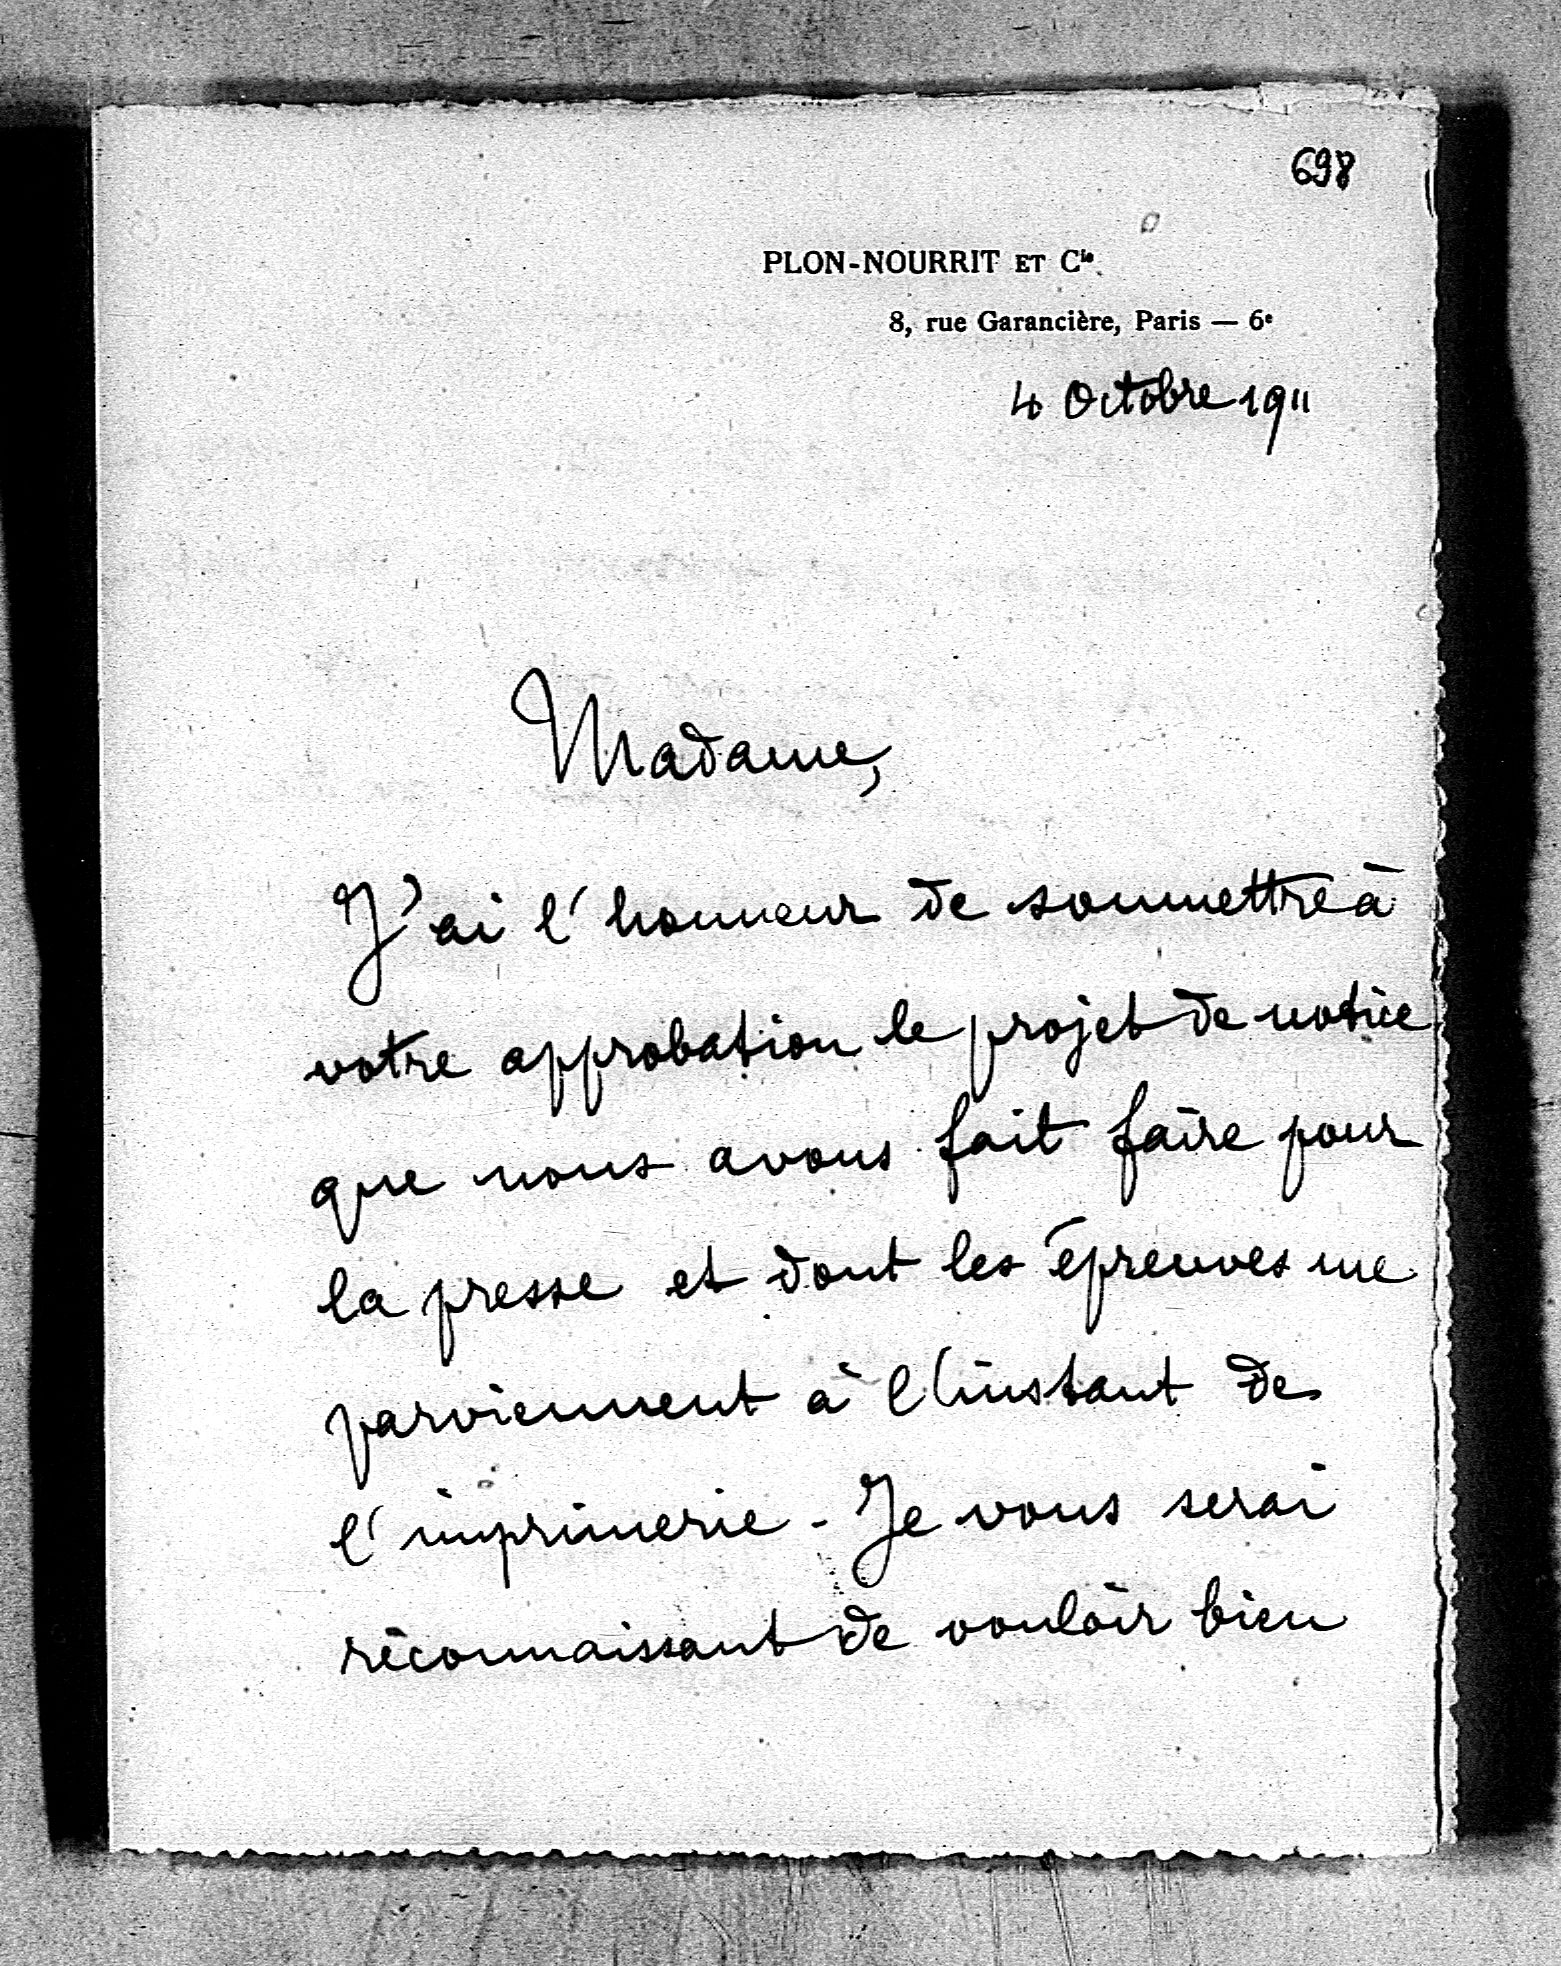 698
PLON-NOURRIT ET Cie
8, rue Garancière, Paris — 6e
4 Octobre 1911
Madame,
J'ai l'honneur de soumettre à
votre approbation le projet de notice
que nous avons fait faire pour
la presse et dont les épreuves me
parviennent à l'instant de
l'imprimerie - Je vous serai
reconnaissant de vouloir bien